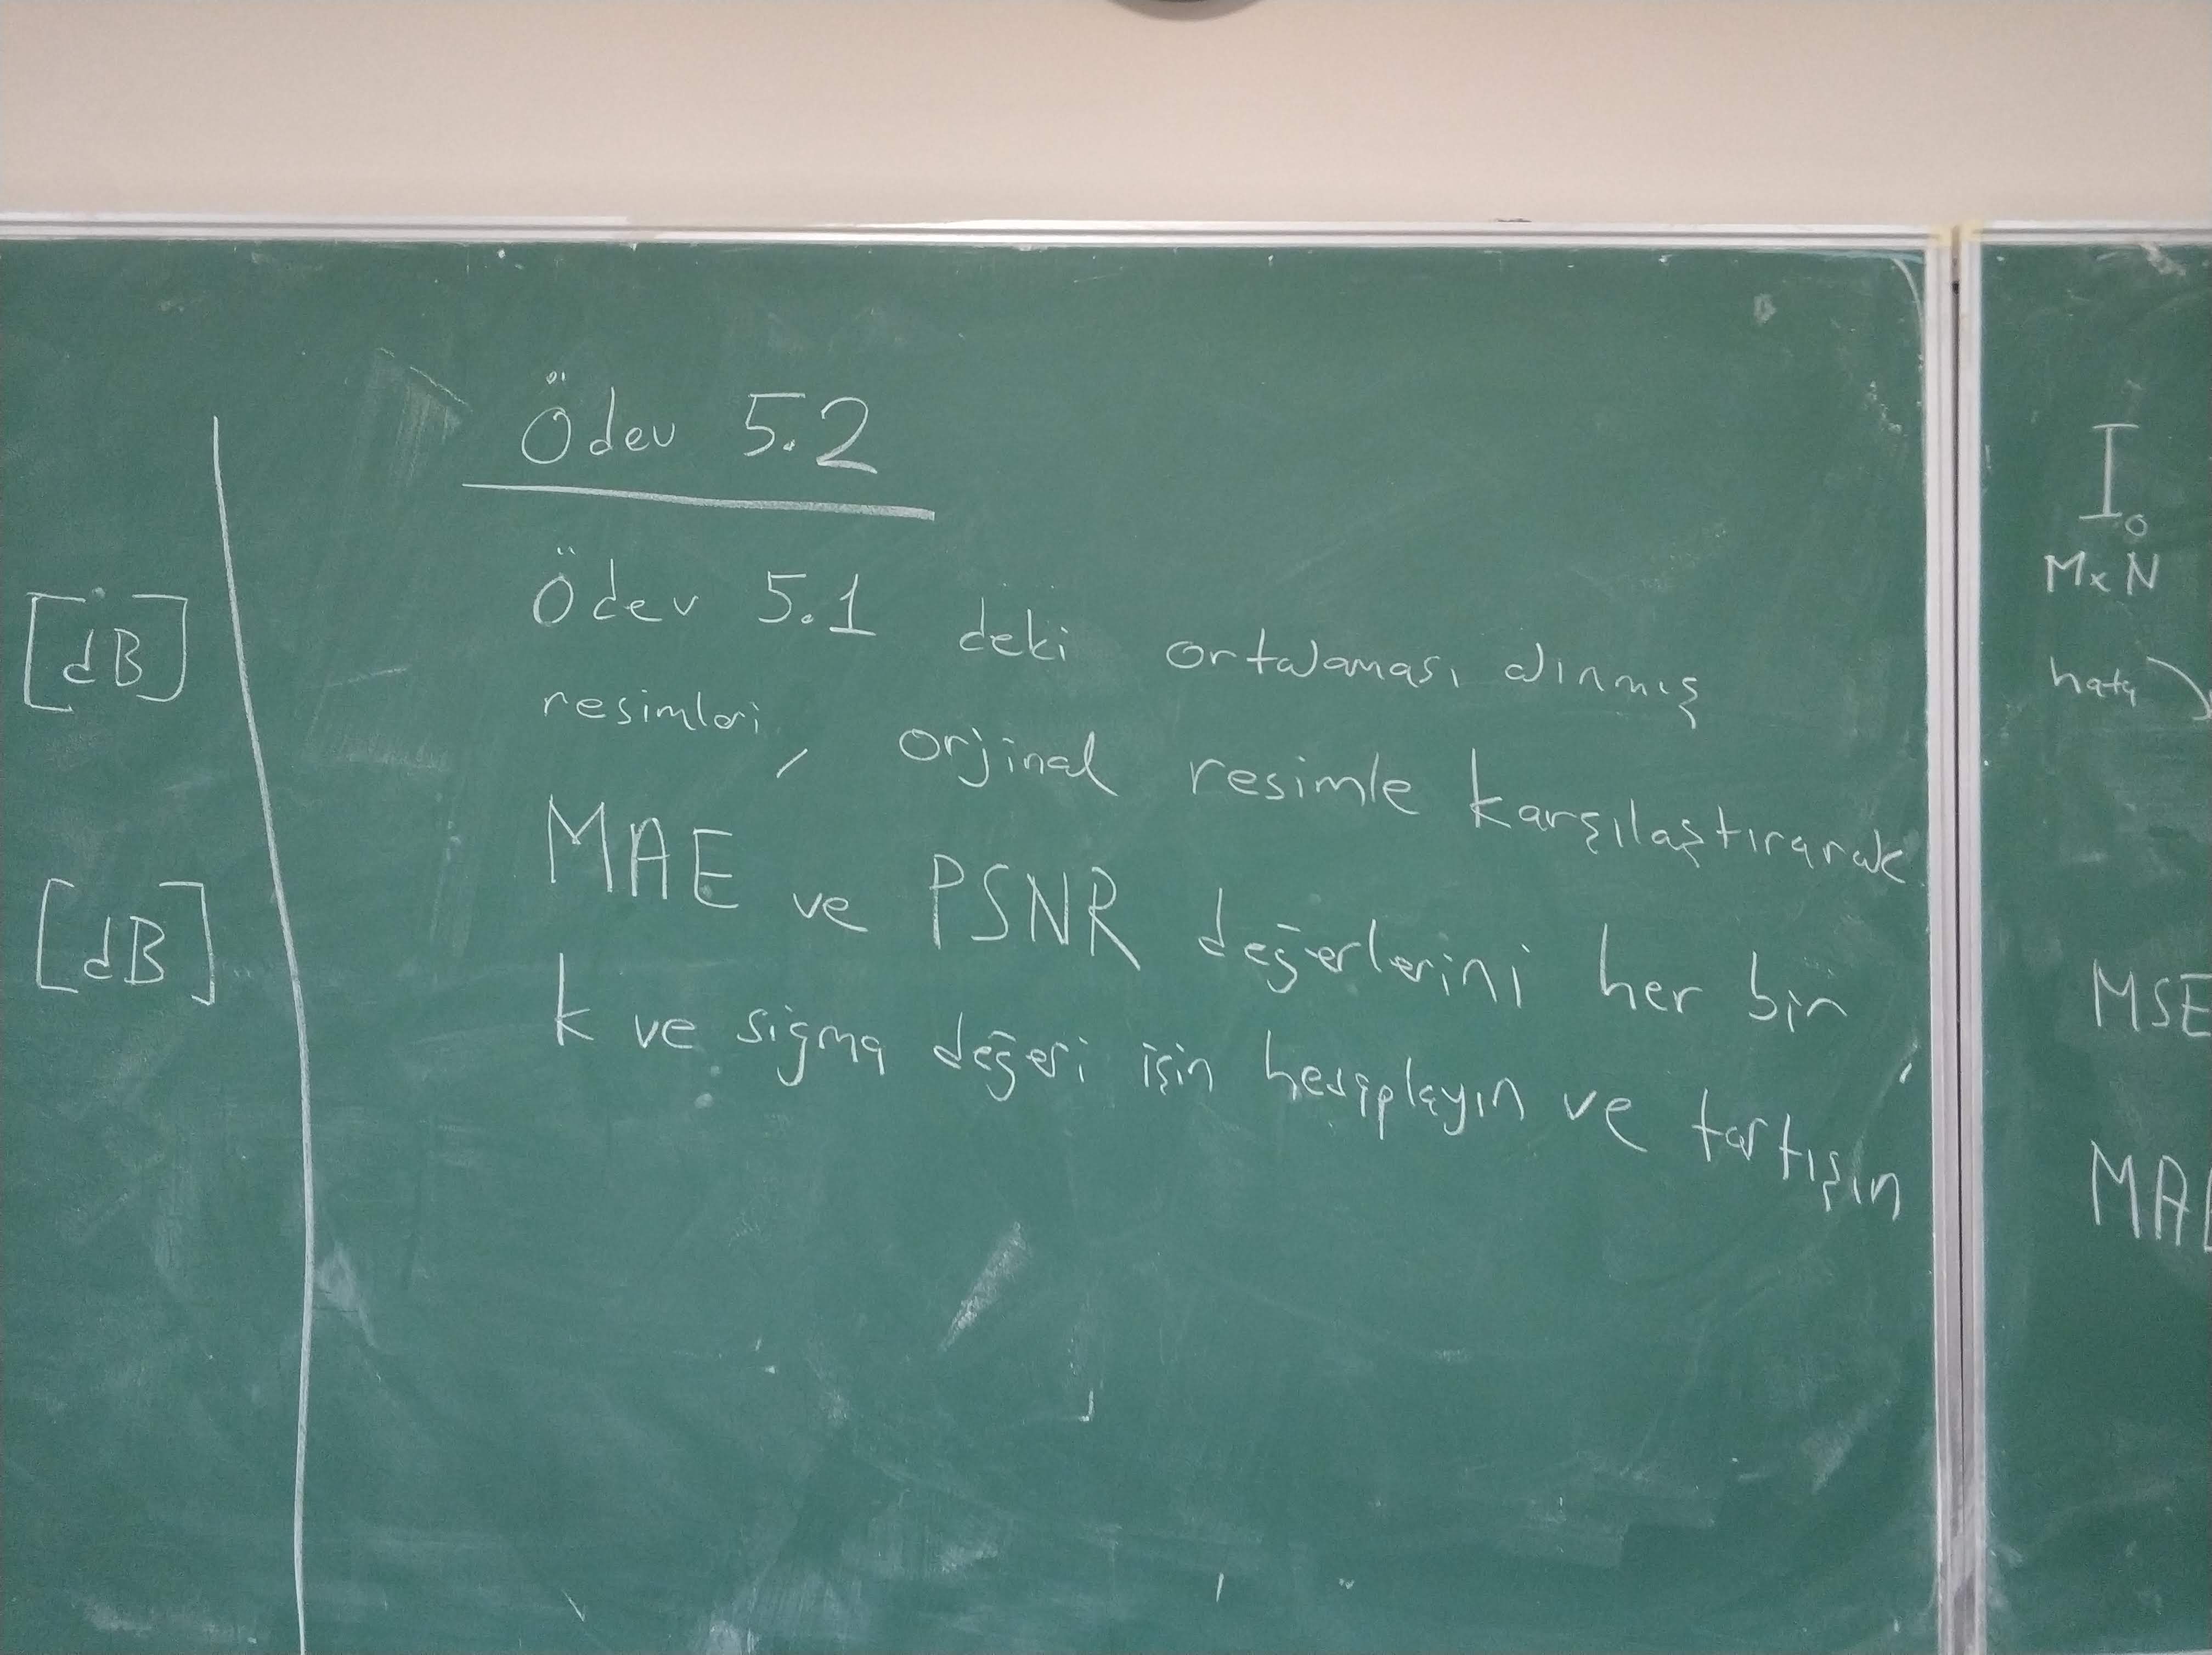 Ödev 5.2
Ödev 5.1 deki ortalaması alınmış
resimleri, orjinal resimle karşılaştırarak
MAE ve PSNR değerlerini her bir
k ve sigma değeri için hesaplayın ve tartışın
[dB]
[dB]
I₀
M×N
hata
MSE
MAE